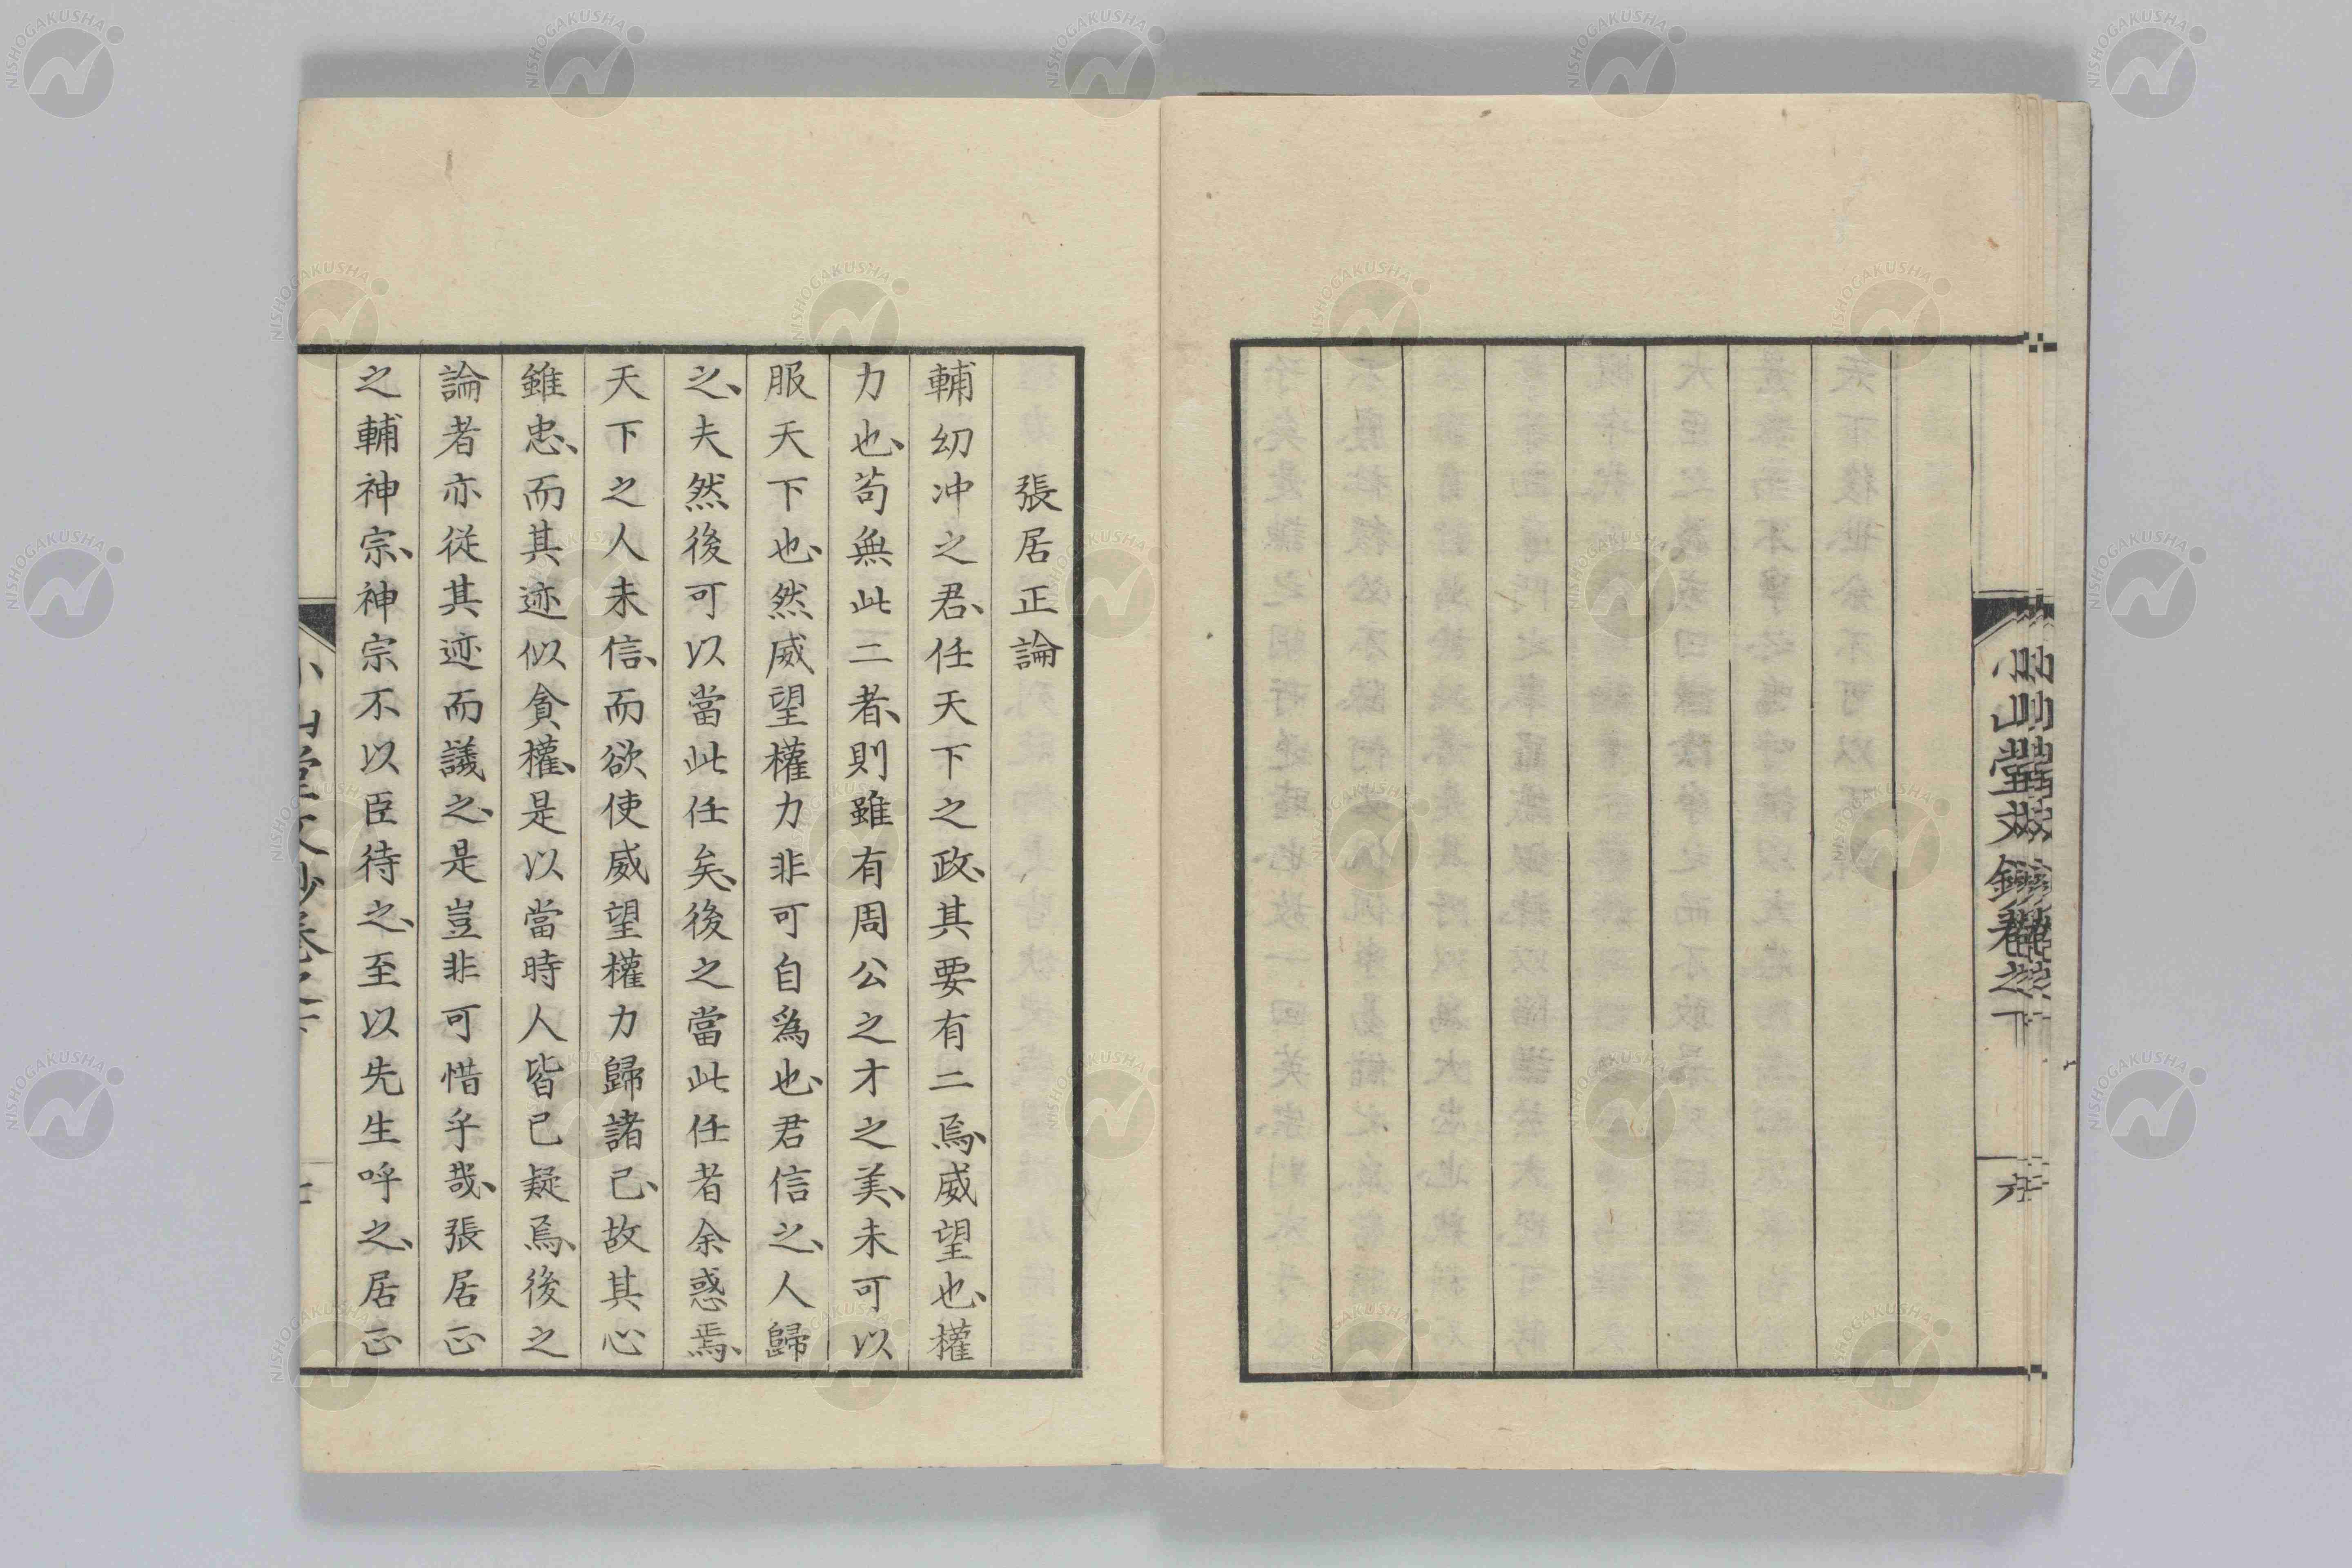 小山堂文鈔卷之下
六
張居正論
輔幼冲之君、任天下之政、其要有二焉、威望也、權
力也、苟無此二者、則雖有周公之才之美、未可以
服天下也、然威望權力非可自爲也、君信之、人歸
之、夫然後可以當此任矣、後之當此任者余惑焉、
天下之人未信、而欲使威望權力歸諸己、故其心
雖忠、而其迹似貪權、是以當時人皆已疑焉、後之
論者亦從其迹而議之、是豈非可惜乎哉、張居正
之輔神宗、神宗不以臣待之、至以先生呼之、居正
NISHOGAKUSHA